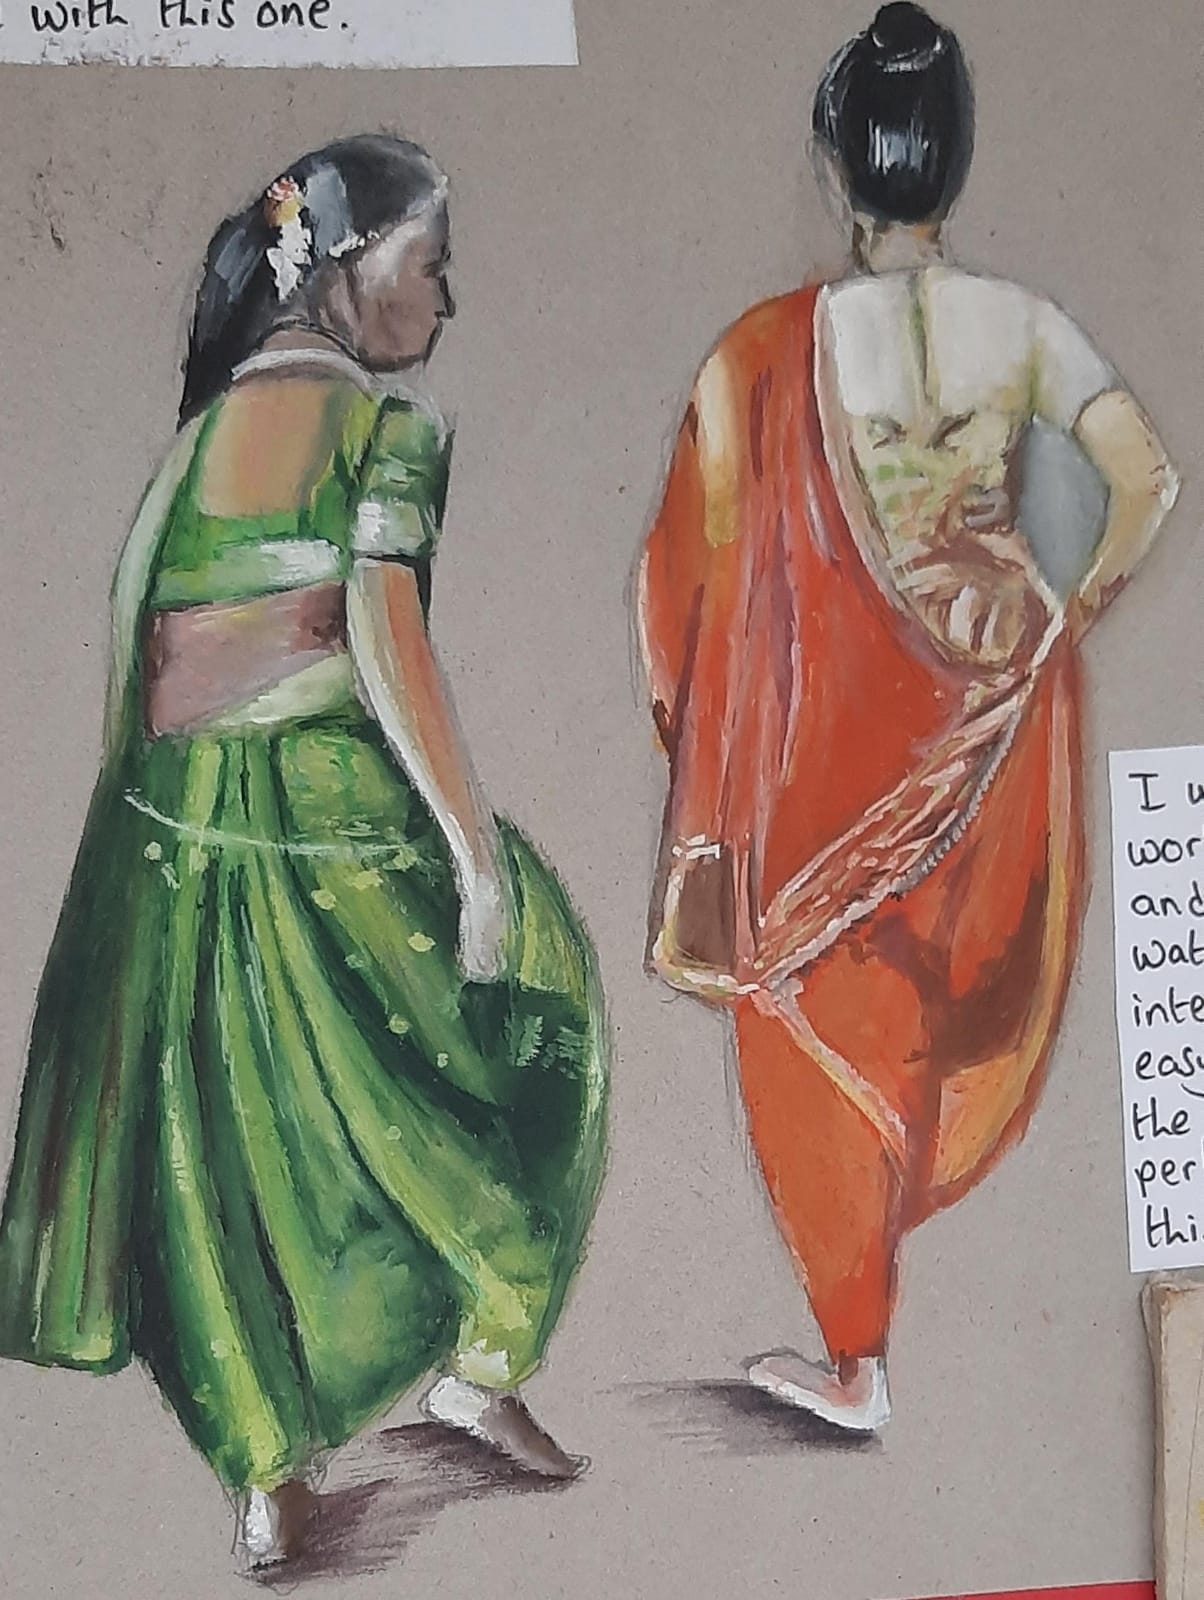 with this one.
I w
wor
and
wat
inte
easy
the
per
thi